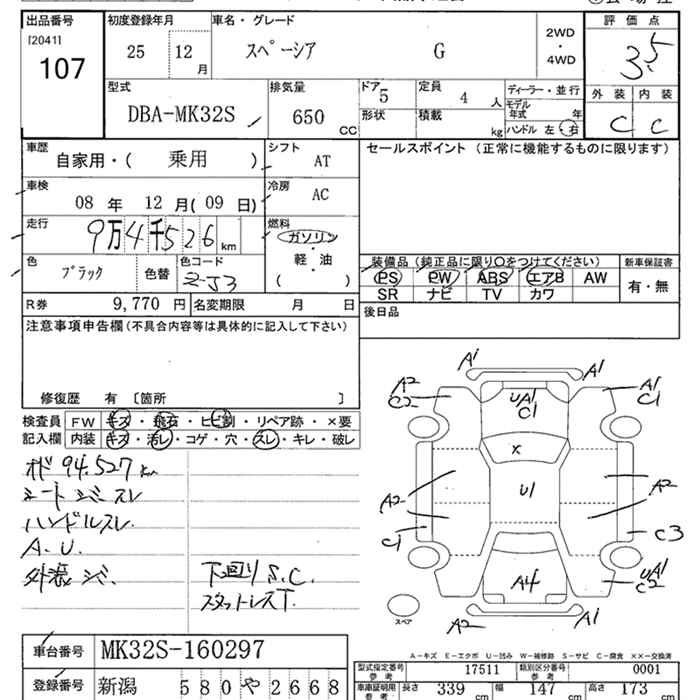 出品番号 初度登録年月 車名・グレード 評価点
[2041]
107
25 12 月 スペーシア G 2WD ・ 4WD 3.5
型式 排気量 ドア 定員 ディーラー・並行 外装 内装
DBA-MK32S 650 CC 5 4 人 モデル年式 年
形状 積載 kg ハンドル 左・右 C C
車歴 自家用・( 乗用 ) シフト AT セールスポイント (正常に機能するものに限ります)
車検 08 年 12 月( 09 日) 冷房 AC
走行 9万4千526 km 燃料 ガソリン・軽・油 ( )
色 ブラック 色替 色コード ZJ3
装備品 (純正品に限り〇をつけてください) 新車保証書
PS PW ABS エアB AW 有・無
SR ナビ TV カワ
R券 9,770 円 名変期限 月 日
後日品
注意事項申告欄 (不具合内容等は具体的に記入して下さい)
修復歴 有 [箇所 ]
検査員 FW キズ・飛石・ヒビ割・リペア跡・×要
記入欄 内装 キズ・汚レ・コゲ・穴・スレ・キレ・破レ
オド 94,527 km
シート シミ スレ
ハンドルスレ
A.U.
外装 シミ 下廻り S.C.
スタットレスT.
A1 A1
A2 C2 UA1 C1 A1 C1
×
A2 U1 A2
C1 C3
A4 UA1 C2
スペア A2 A1
A-キズ E-エクボ U-凹み W-補修跡 S-サビ C-腐食 ××-交換済
車台番号 MK32S-160297
型式指定番号 参考 17511 類別区分番号 参考 0001
登録番号 新潟 580 や 2668
車庫証明用 参考 長さ 339 cm 幅 147 cm 高さ 173 cm